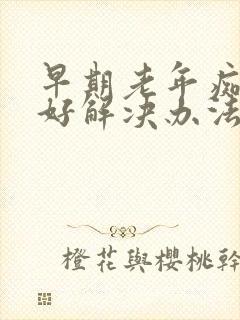 早期老年痴
好解决办法
橙花與櫻桃幹